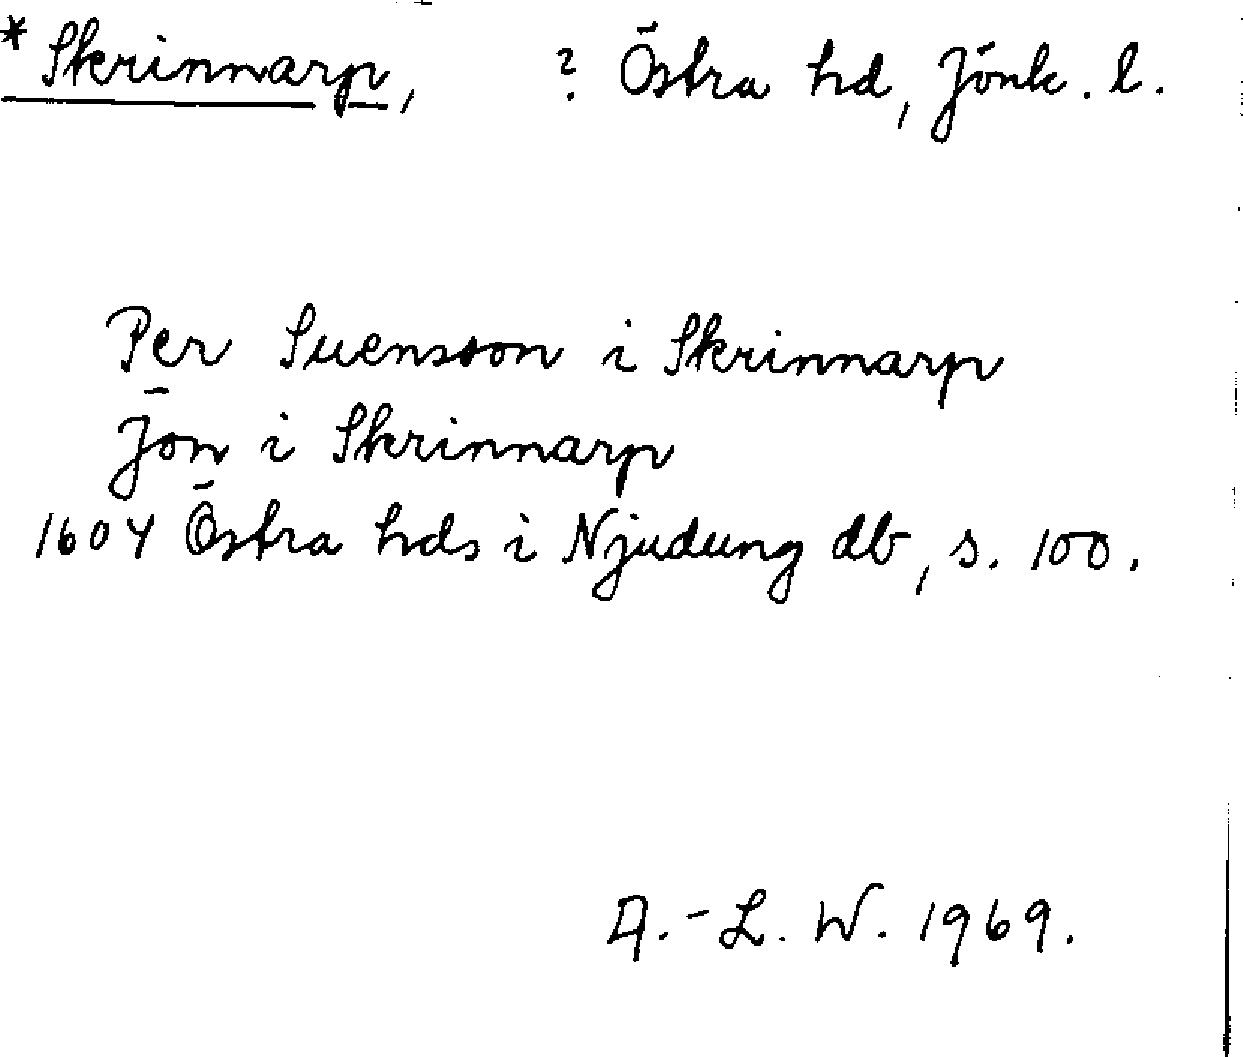 *Skrinnarp, ? Östra hd, Jönk. l.
Per Suensson i Skrinnarp
Jon i Skrinnarp
1604 Östra hds i Njudung db, s. 100.
A.-L. W. 1969.